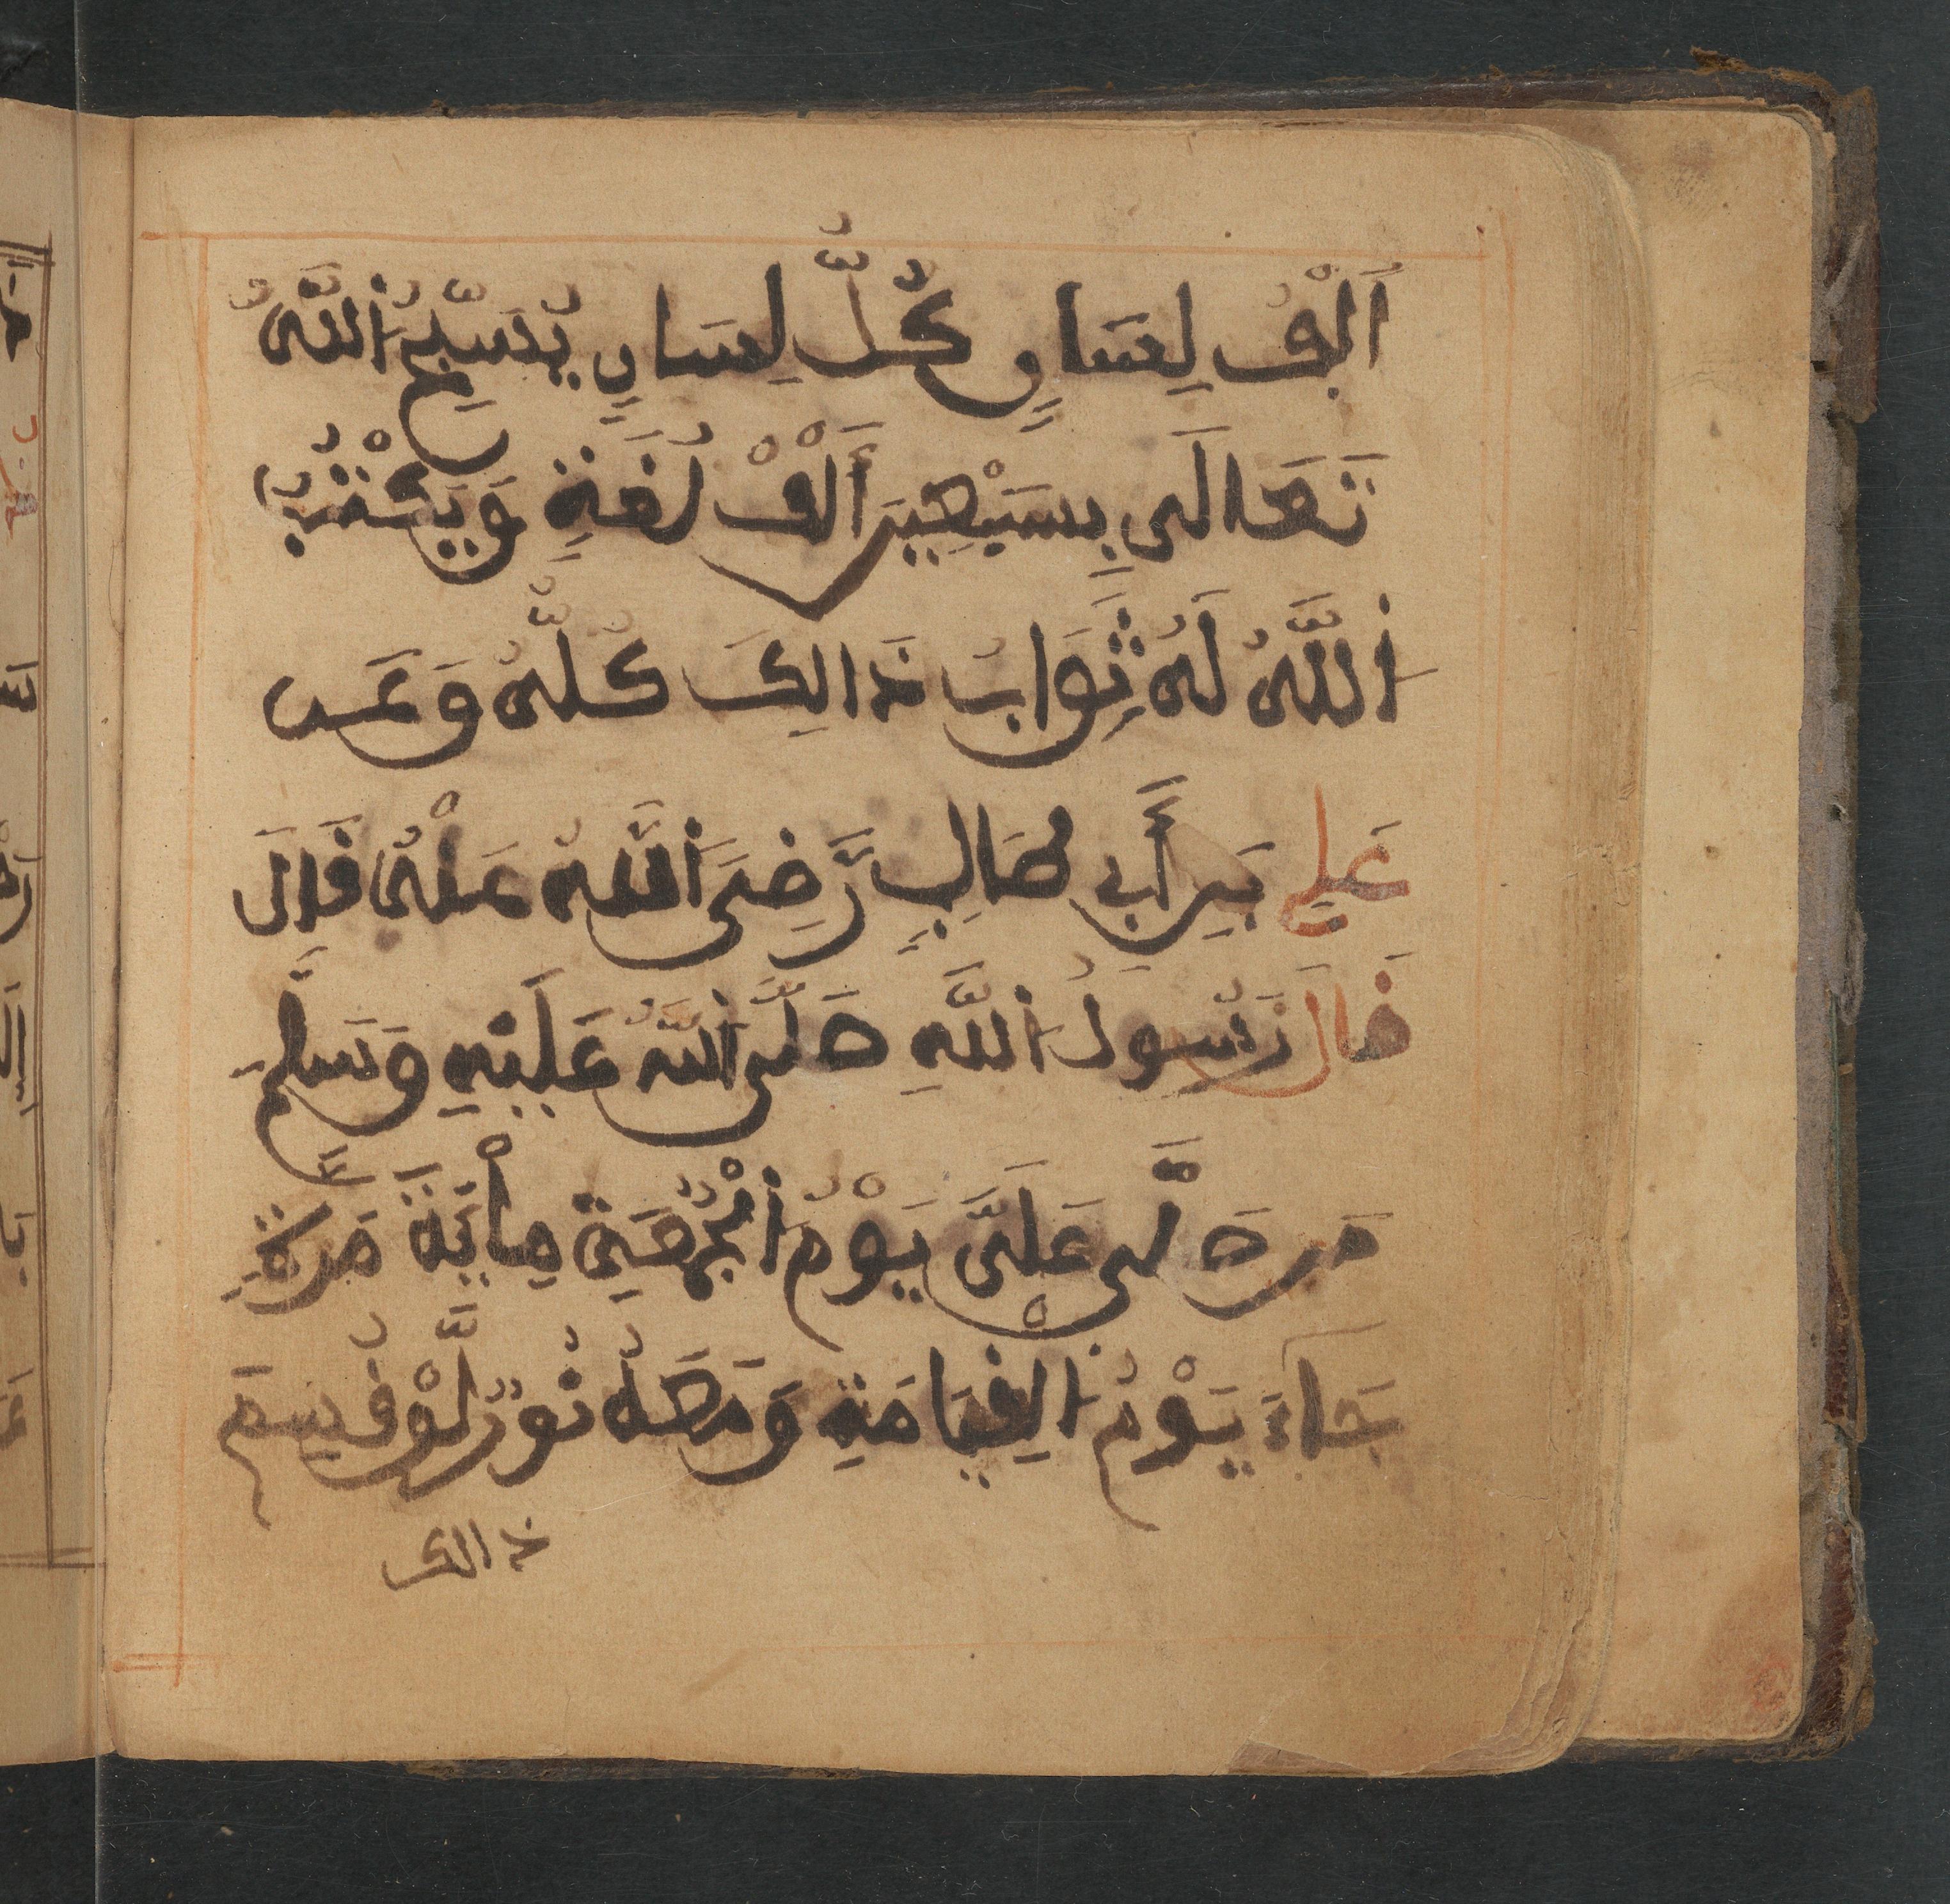 اَلْفُ لِسَانٍ كُلُّ لِسَانٍ يُسَبِّحُ اُللَّهَ
تَعَالَى بِسَبْعِينَ أَلْفَ لُغَةٍ وَيَكْتُبُ
اُللَّهُ لَهُ ثَوَابُ ذَالِكَ كُلُّهُ وَعَن
عَلِي بَنِ أَبِي طَالِبٍ رَّضِيَ اَللَّهُ عَنْهُ قَالَ
قَالَ رَسُولُ اُللَّهِ صَلَّى اَللَّهُ عَلَيْهِ وَسَلَّمَ
مَن صَلَّى عَلَيَّ يَوْمَ اُلْجُمُعَةِ مِأْيَةَ مَرَّةٍ
جَاءَ يَوْمُ الْقِيَامَةِ وَمَعَهُ نُورٌ لَّوْ قُسِمَ
ذالك